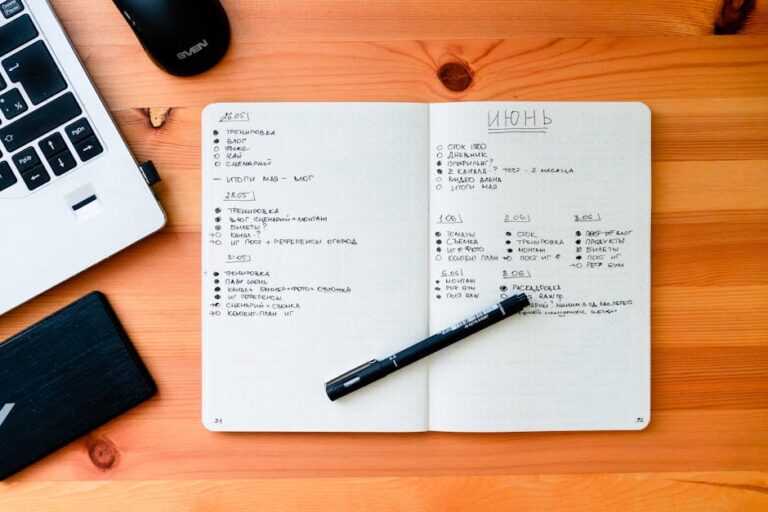 SVEN
26.05
ТРЕНИРОВКА
ВЛОГ
ФИКС
ЧАЙ
СЦЕНАРИЙ
— ИТОГИ МАЯ — ВЛОГ
28.05
ТРЕНИРОВКА
ВЛОГ СЦЕНАРИЙ + МОНТАЖ
БИЛЕТЫ?
КАНАЛ - ?
ИГ ПОСТ + РЕФЕРЕНСЫ ОГОРОД
31.05
ТРЕНИРОВКА
ПЛАН ИЮНЬ
КАНАЛ + БАННЕР + ФОТО + ОБЛОЖКА
ИГ РЕФЕРЕНСЫ
СЦЕНАРИЙ + СЪЕМКА
КОНТЕНТ-ПЛАН ИГ
31
ИЮНЬ
СТОК 1500
ДНЕВНИК
ПРОФИЛИНГ?
2 КАНАЛА - ? ТЕСТ - 2 МЕСЯЦА
ВИДЕО АЛЕНА
ИТОГИ МАЯ
1.06
ТОМАТЫ
СЪЕМКА
ИГ ФОТО
КОНТЕНТ ПЛАН
2.06
СТОК
ТРЕНИРОВКА
МОНТАЖ
ПОСТ ИГ
3.06
ВЛОГ
ПРОДУКТЫ
БИЛЕТЫ
ПОСТ ИГ
6.06
МОНТАЖ
ПОСТ RAW
8.06
РАСКАДРОВКА
RAW
32